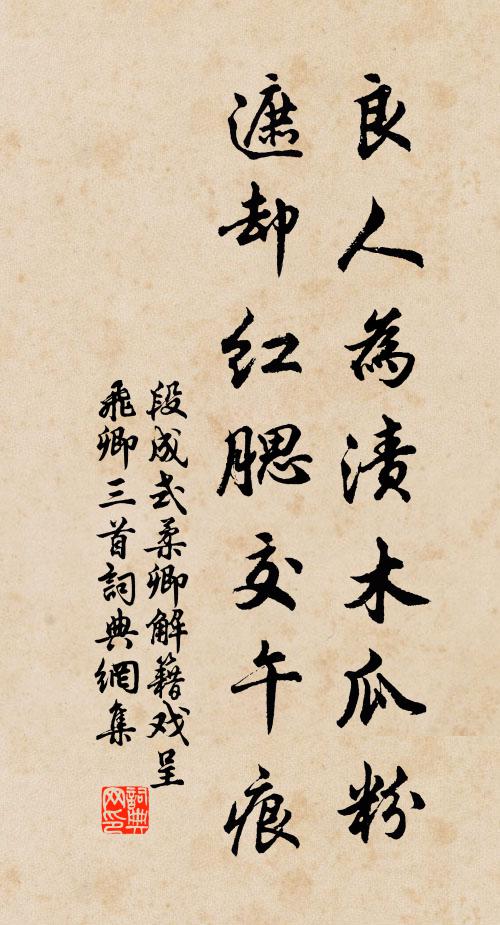 良人為漬木瓜粉
遮却红腮交午痕
段成式柔卿解籍戏呈
飛卿三首詞典網集
詞典网印